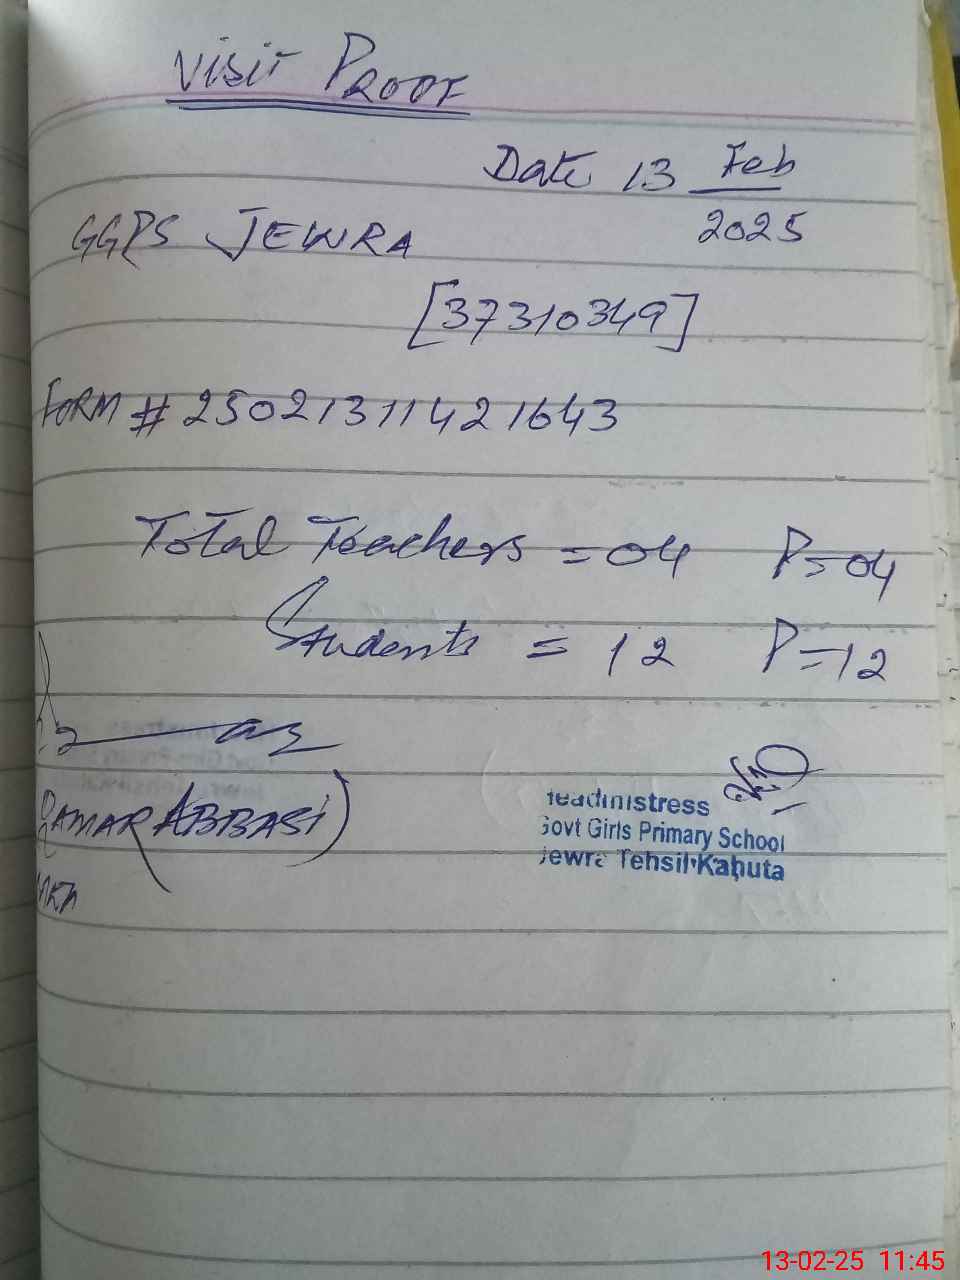 Visit Proof
Date 13 Feb
2025
GGPS JEWRA
[37310349]
FORM # 25021311421643
Total Teachers = 04 P=04
Students = 12 P=12
QAMAR ABBASI)
Headinistress
Govt Girls Primary School
Jewra Tehsil Kahuta
13-02-25 11:45